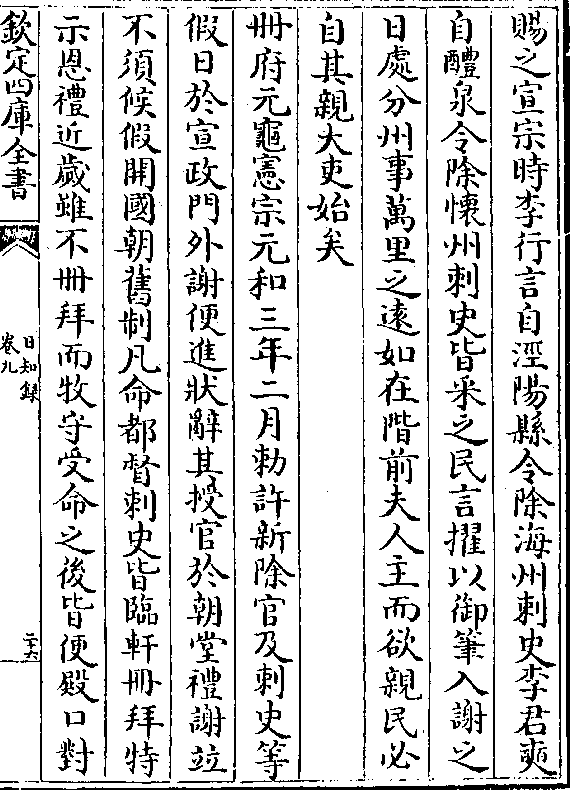 賜之宣宗時李行言自涇陽縣令除海州刺史李君奭
自醴泉令除懷州刺史皆采之民言擢以御筆入謝之
日處分州事萬里之逺如在階前夫人主而欲親民必
自其親大吏始矣
冊府元龜憲宗元和三年二月勅許新除官及刺史等
假日於宣政門外謝便進狀辭其授官於朝堂禮謝竝
不須候假開國朝舊制凡命都督刺史皆臨軒冊拜特
示恩禮近歲雖不冊拜而牧守受命之後皆便殿口對
欽定四庫全書
日知録
卷九
二十六